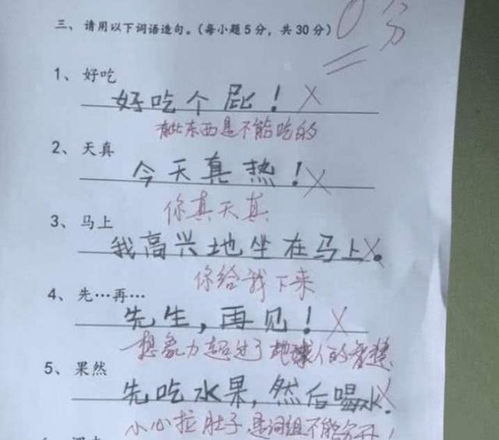 三、请用以下词语造句。(每小题5分，共30分) 0分
1、好吃
好吃个屁！
有些东西是不能吃的
2、天真
今天真热！
你真天真
3、马上
我高兴地坐在马上。
你给我下来
4、先…再…
先生，再见！
想象力超过了地球人的智慧
5、果然
先吃水果，然后喝水.
小心拉肚子 是词组不能分开！